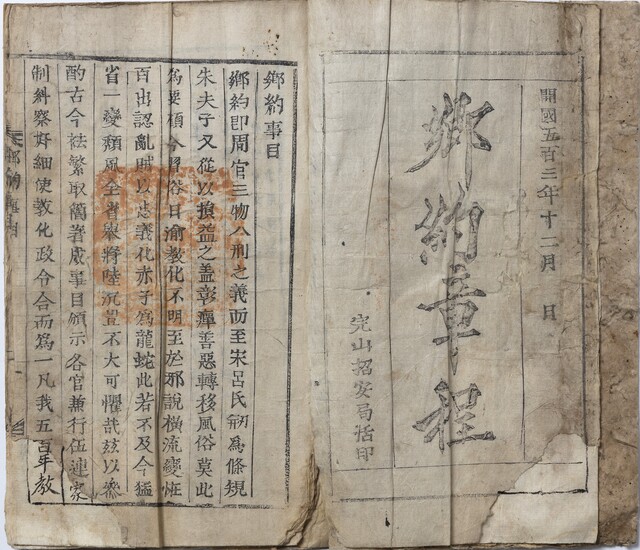 開國五百三年十二月 日
鄕約章程
完山招安局活印
鄕約事目
鄕約卽周官三物八刑之義而至宋呂氏剏爲條規
朱夫子又從以損益之盖彰癉善惡轉移風俗莫此
爲要領今習俗日渝敎化不明至於邪說橫流變恠
百出認亂賊以忠義化赤子爲龍蛇此若不及今猛
省一變頹風至者擧將陸沉豈不大可懼哉玆以叅
酌古今袪繁取簡著成事目頒示各官兼行伍連家
制糾察奸細使敎化政令合而爲一凡我五百年敎